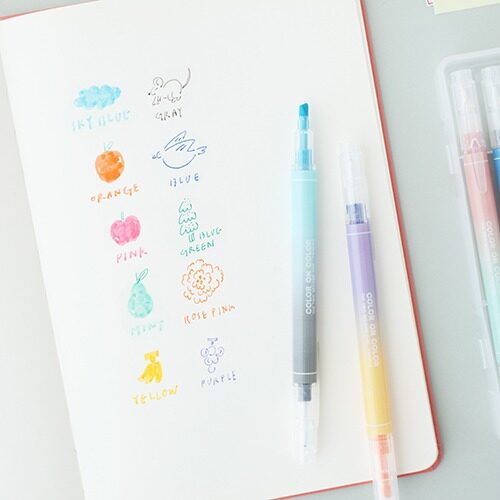 SKY BLUE
GRAY
ORANGE
BLUE
PINK
BLUE
GREEN
MINT
ROSE PINK
YELLOW
PURPLE
COLOR ON COLOR
COLOR ON COLOR